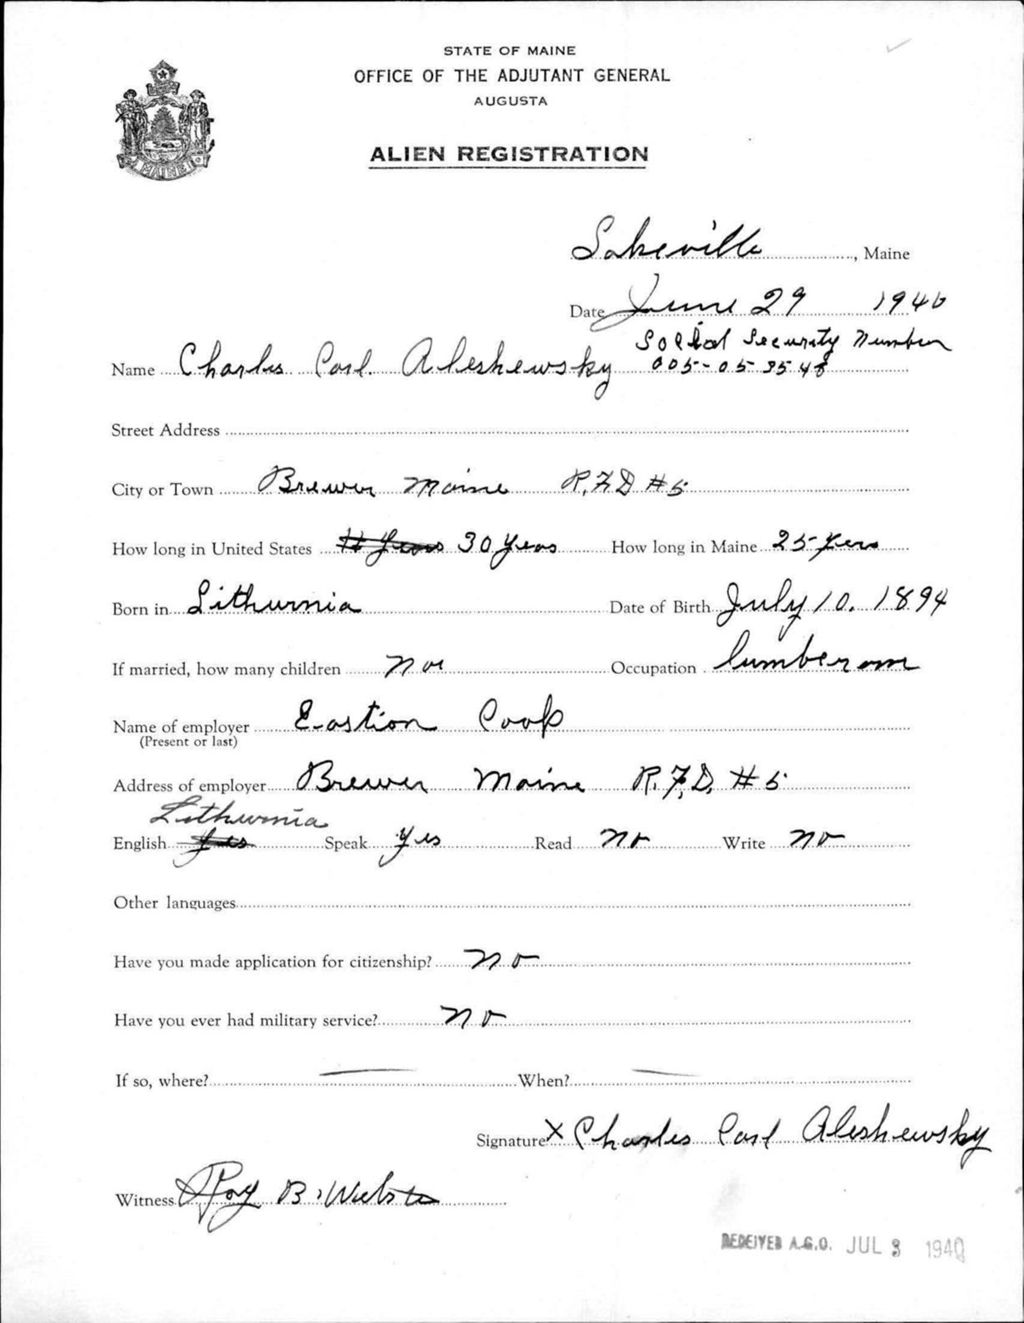 STATE OF MAINE
OFFICE OF THE ADJUTANT GENERAL
AUGUSTA
ALIEN REGISTRATION
MAINE
Lakeville, Maine
Date June 29 1940
Social Security Number
Name Charles Carl Aleshewsky 005-05 3548
Street Address
City or Town Brewer Maine R.F.D #5
How long in United States 30 years How long in Maine 25 years
Born in Lithurnia Date of Birth July 10. 1894
If married, how many children Occupation
Name of employer Eastion Coop
(Present or last)
Address of employer Brewer Maine R.F.D. #5
Lithurnia
English Yes Speak Yes Read No Write No
Other languages
Have you made application for citizenship? No
Have you ever had military service? No
If so, where? When?
Signature X Charles Carl Aleshewsky
Witness Roy B. Webster
RECEIVED A.G.O. JUL 3 1940